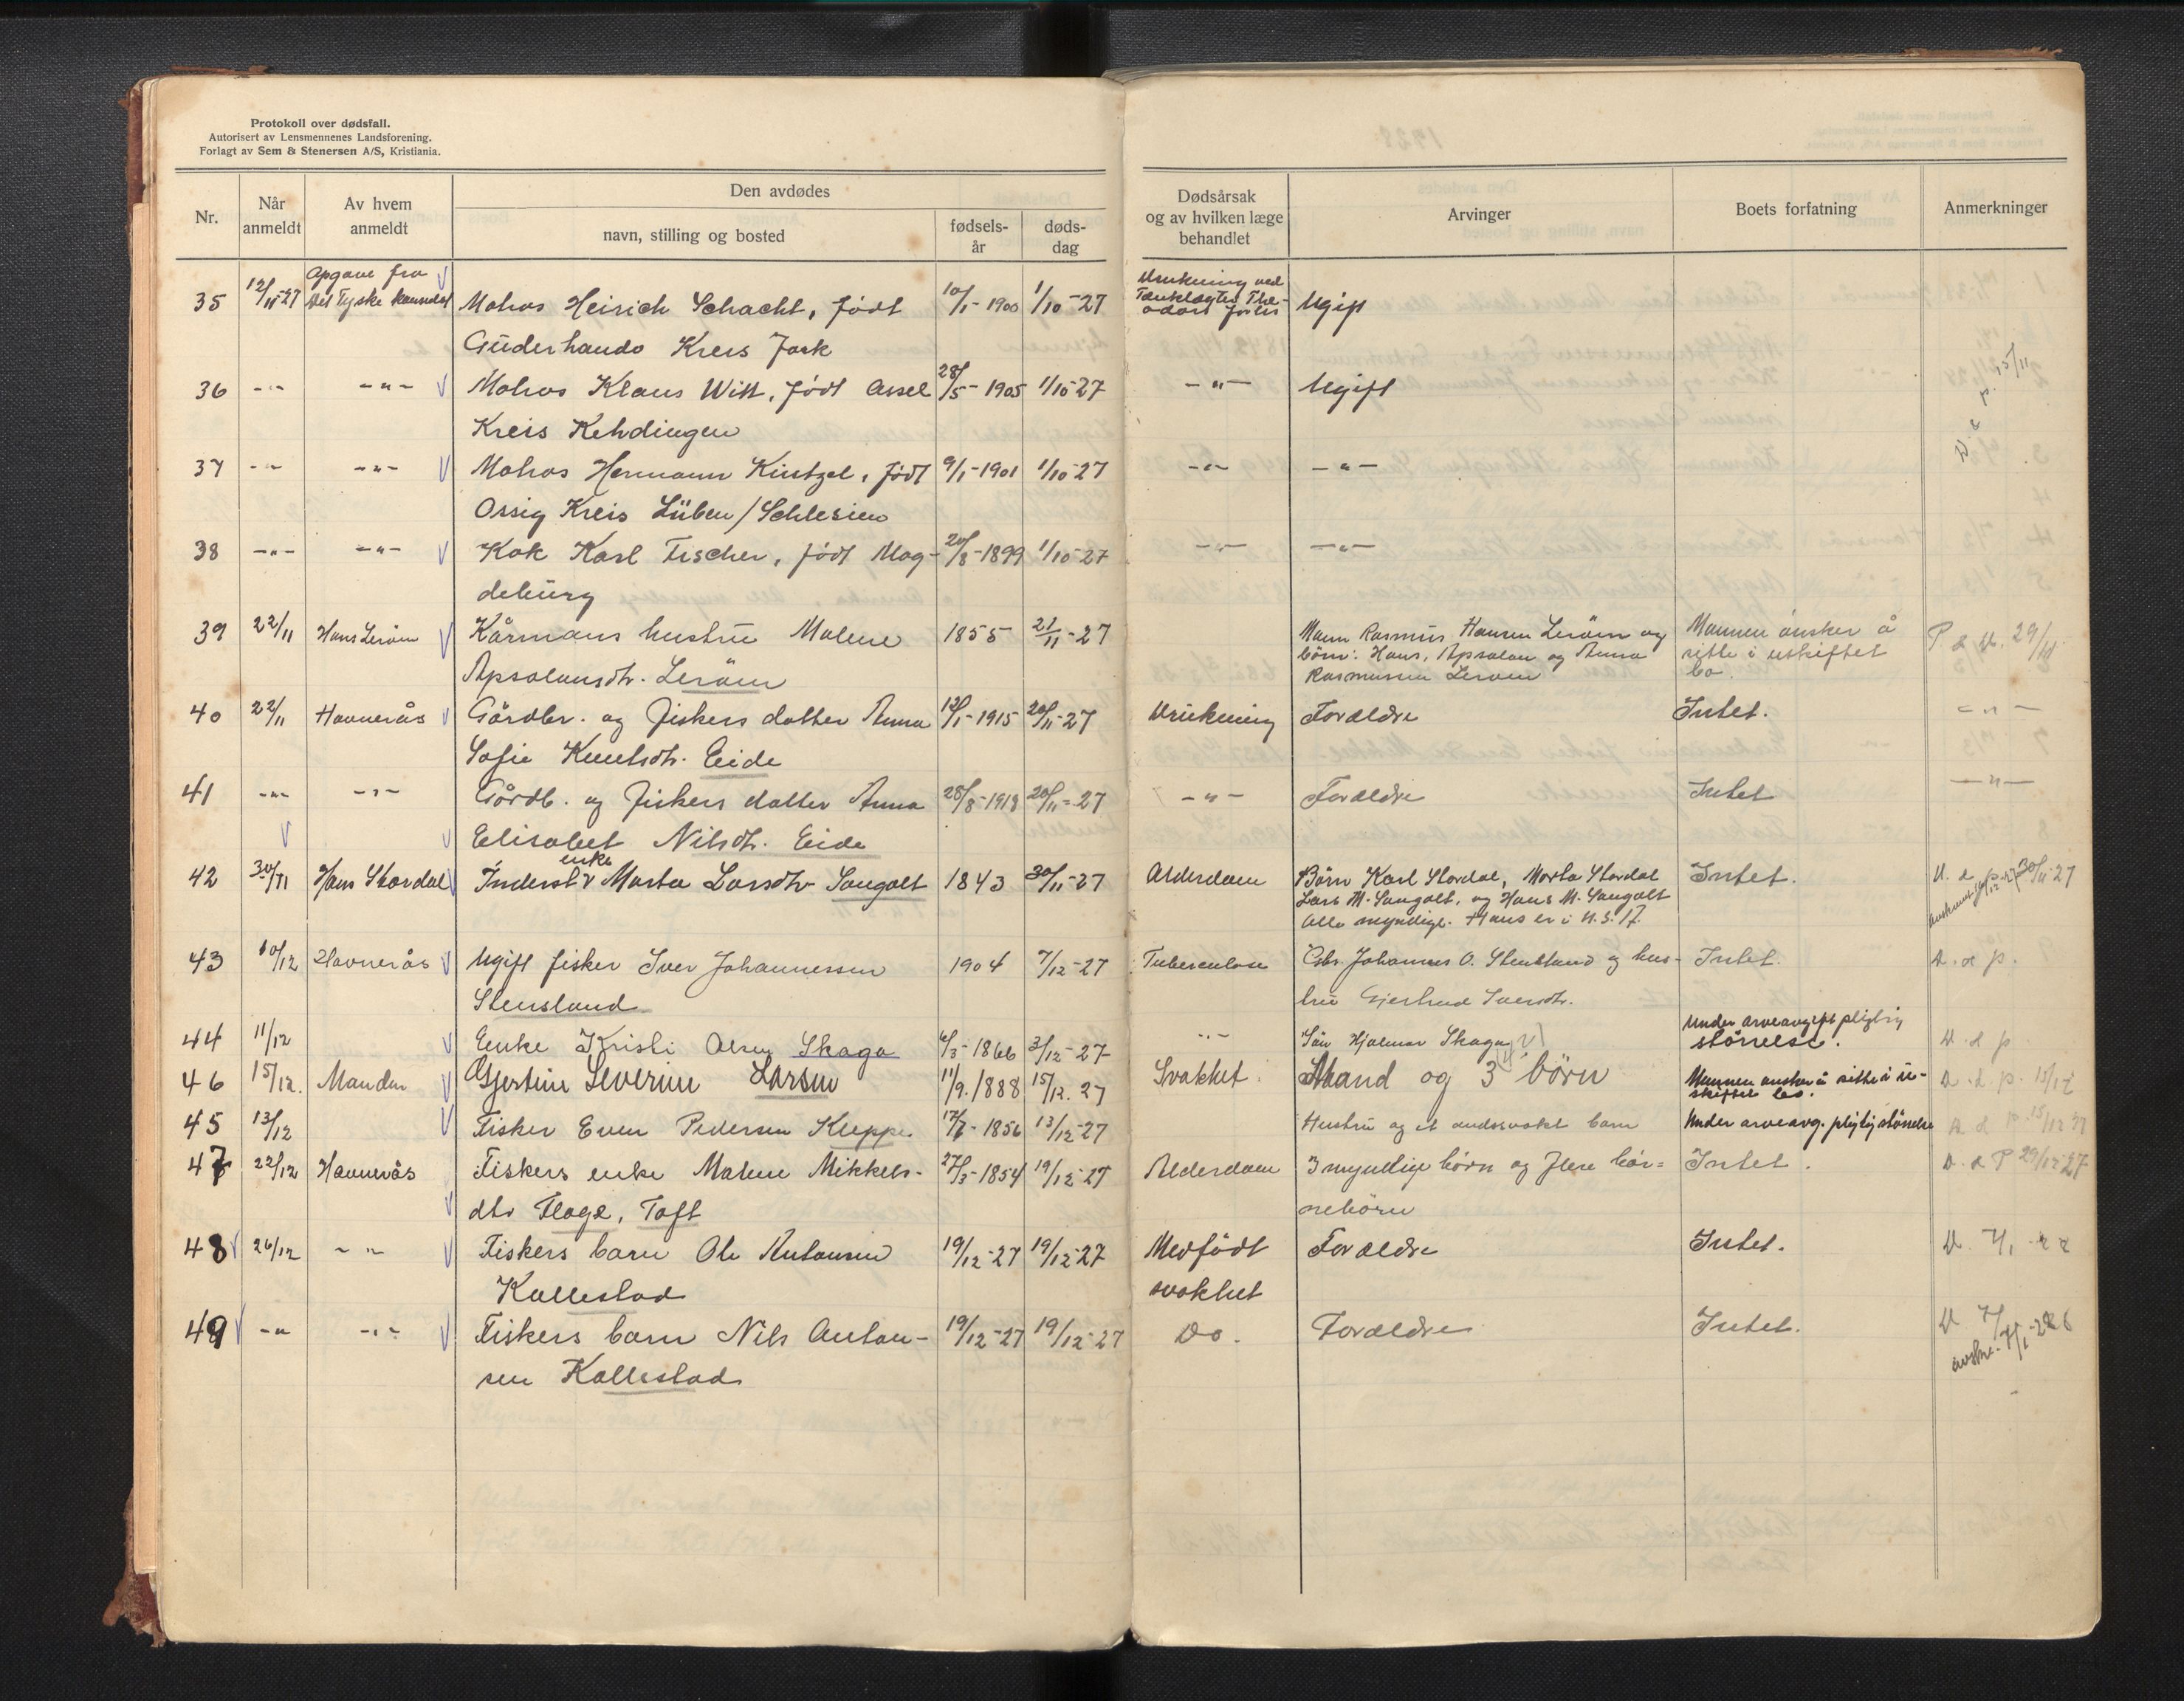 Protokoll over dødsfall.
Autorisert av Lensmennenes Landsforening.
Forlagt av Sem & Stenersen A/S, Kristiania.
Nr. Når anmeldt Av hvem anmeldt Den avdødes navn, stilling og bosted fødselsår dødsdag Dødsårsak og av hvilken læge behandlet Arvinger Boets forfatning Anmerkninger
35 12/11-27 Opgave fra Det Tyske Matros Heirich Schacht, født 10/1-1900 1/10-27 Drukning ved Ugift
Güderhando Kreis Jork
36 -"- -"- Matros Klaus Witt, født Assel 28/5-1905 1/10-27 -"- Ugift
Kreis Kehdingen
37 -"- -"- Matros Hermann Kintzel, født 9/1-1901 1/10-27 -"- -"-
Ossig Kreis Lüben/Schlesien
38 -"- -"- Kok Karl Fischer, født Mag- 20/8-1899 1/10-27 -"- -"-
deburg
39 22/11 Hans Lerøen Kårmans hustru Malene 1855 21/11-27 Mann Rasmus Hansen Lerøen og Mannen ønsker å
Apsalonsdtr. Lerøen børn: Hans, Apsalon og Anna sitte i uskiftet
Rasmussen Lerøen bo.
40 22/11 Havnerås Gårdbr. og fiskers datter Anna 12/1-1915 20/11-27 Drukning Forældre Intet. -"-
Sofie Knutsdtr. Eide
41 -"- -"- Gårdb. og fiskers datter Anna 28/8-1918 20/11-27 -"- Forældre Intet -"-
Elisabet Nilsdtr. Eide
42 30/11 Hans Stordal Inderst enke Marta Larsdtr Sangolt 1843 30/11-27 Alderdom Børn Karl Stordal, Marta Stordal Intet. D. d p. 30/11-27
Lars M. Sangolt, og Hans M. Sangolt
Alle myndige. Hans er i U.S.A.
43 10/12 Havnerås Ugift fisker Iver Johannessen 1904 7/12-27 Tuberculose Gbr. Johannes O. Stensland og hus- Intet. D. d p.
Stensland tru Gjertrud Iversdtr.
44 11/12 Enke Kristi Olsen Skaga 6/3-1866 3/12-27 -"- Søn Hjalmar Skaga Under arveavgift pligtig D. d p
størrelse.
46 15/12. Manden Gjertine Severine Larsen 11/9.1888 15/12.27 Svakhet. Mand og 3 børn Mannen ønsker å sitte i u- D. d p 15/12
skiftet bo.
45 13/12 Fisker Even Pedersen Kleppe. 17/7-1856 13/12-27 Hustru og et åndssvakt barn Under arveavg. pligtig størrelse D. d p. 15/12 27
47 22/12 Havnerås Fiskers enke Malene Mikkels- 27/3-1854 19/12-27 Alderdom 3 myndige børn og flere bar- Intet. D. d P 29/12-27
dtr Flage, Toft nebörn
48 26/12 -"- Fiskers barn Ole Antonsen 19/12-27 19/12-27 Medfødt Forældre Intet.
Kallestad svakhet
49 -"- -"- Fiskers barn Nils Anton- 19/12-27 19/12-27 Do. Forældre Intet.
sen Kallestad